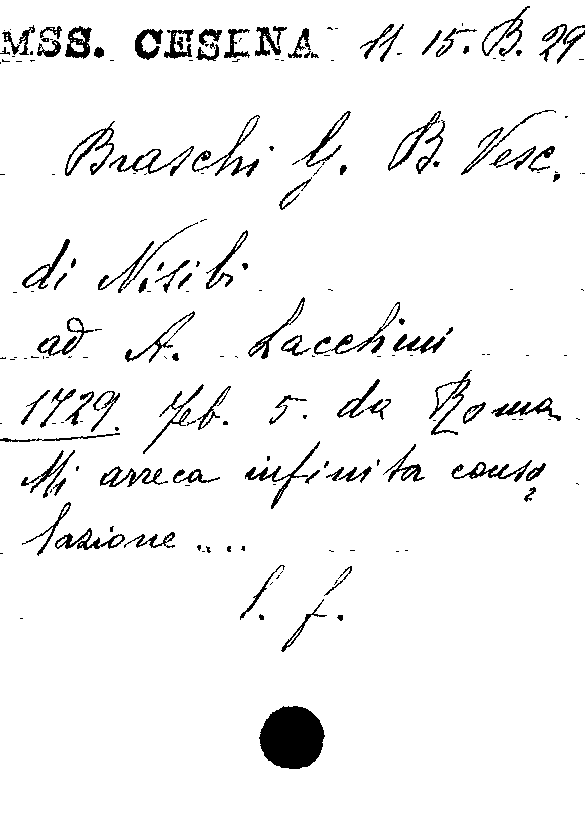 MSS. CESENA 11. 15. B. 29
Braschi G. B. Vesc.
di Nisibi
ad A. Lacchini
1729. Feb. 5. da Roma
Mi arreca infinita conso
lazione ....
l. f.